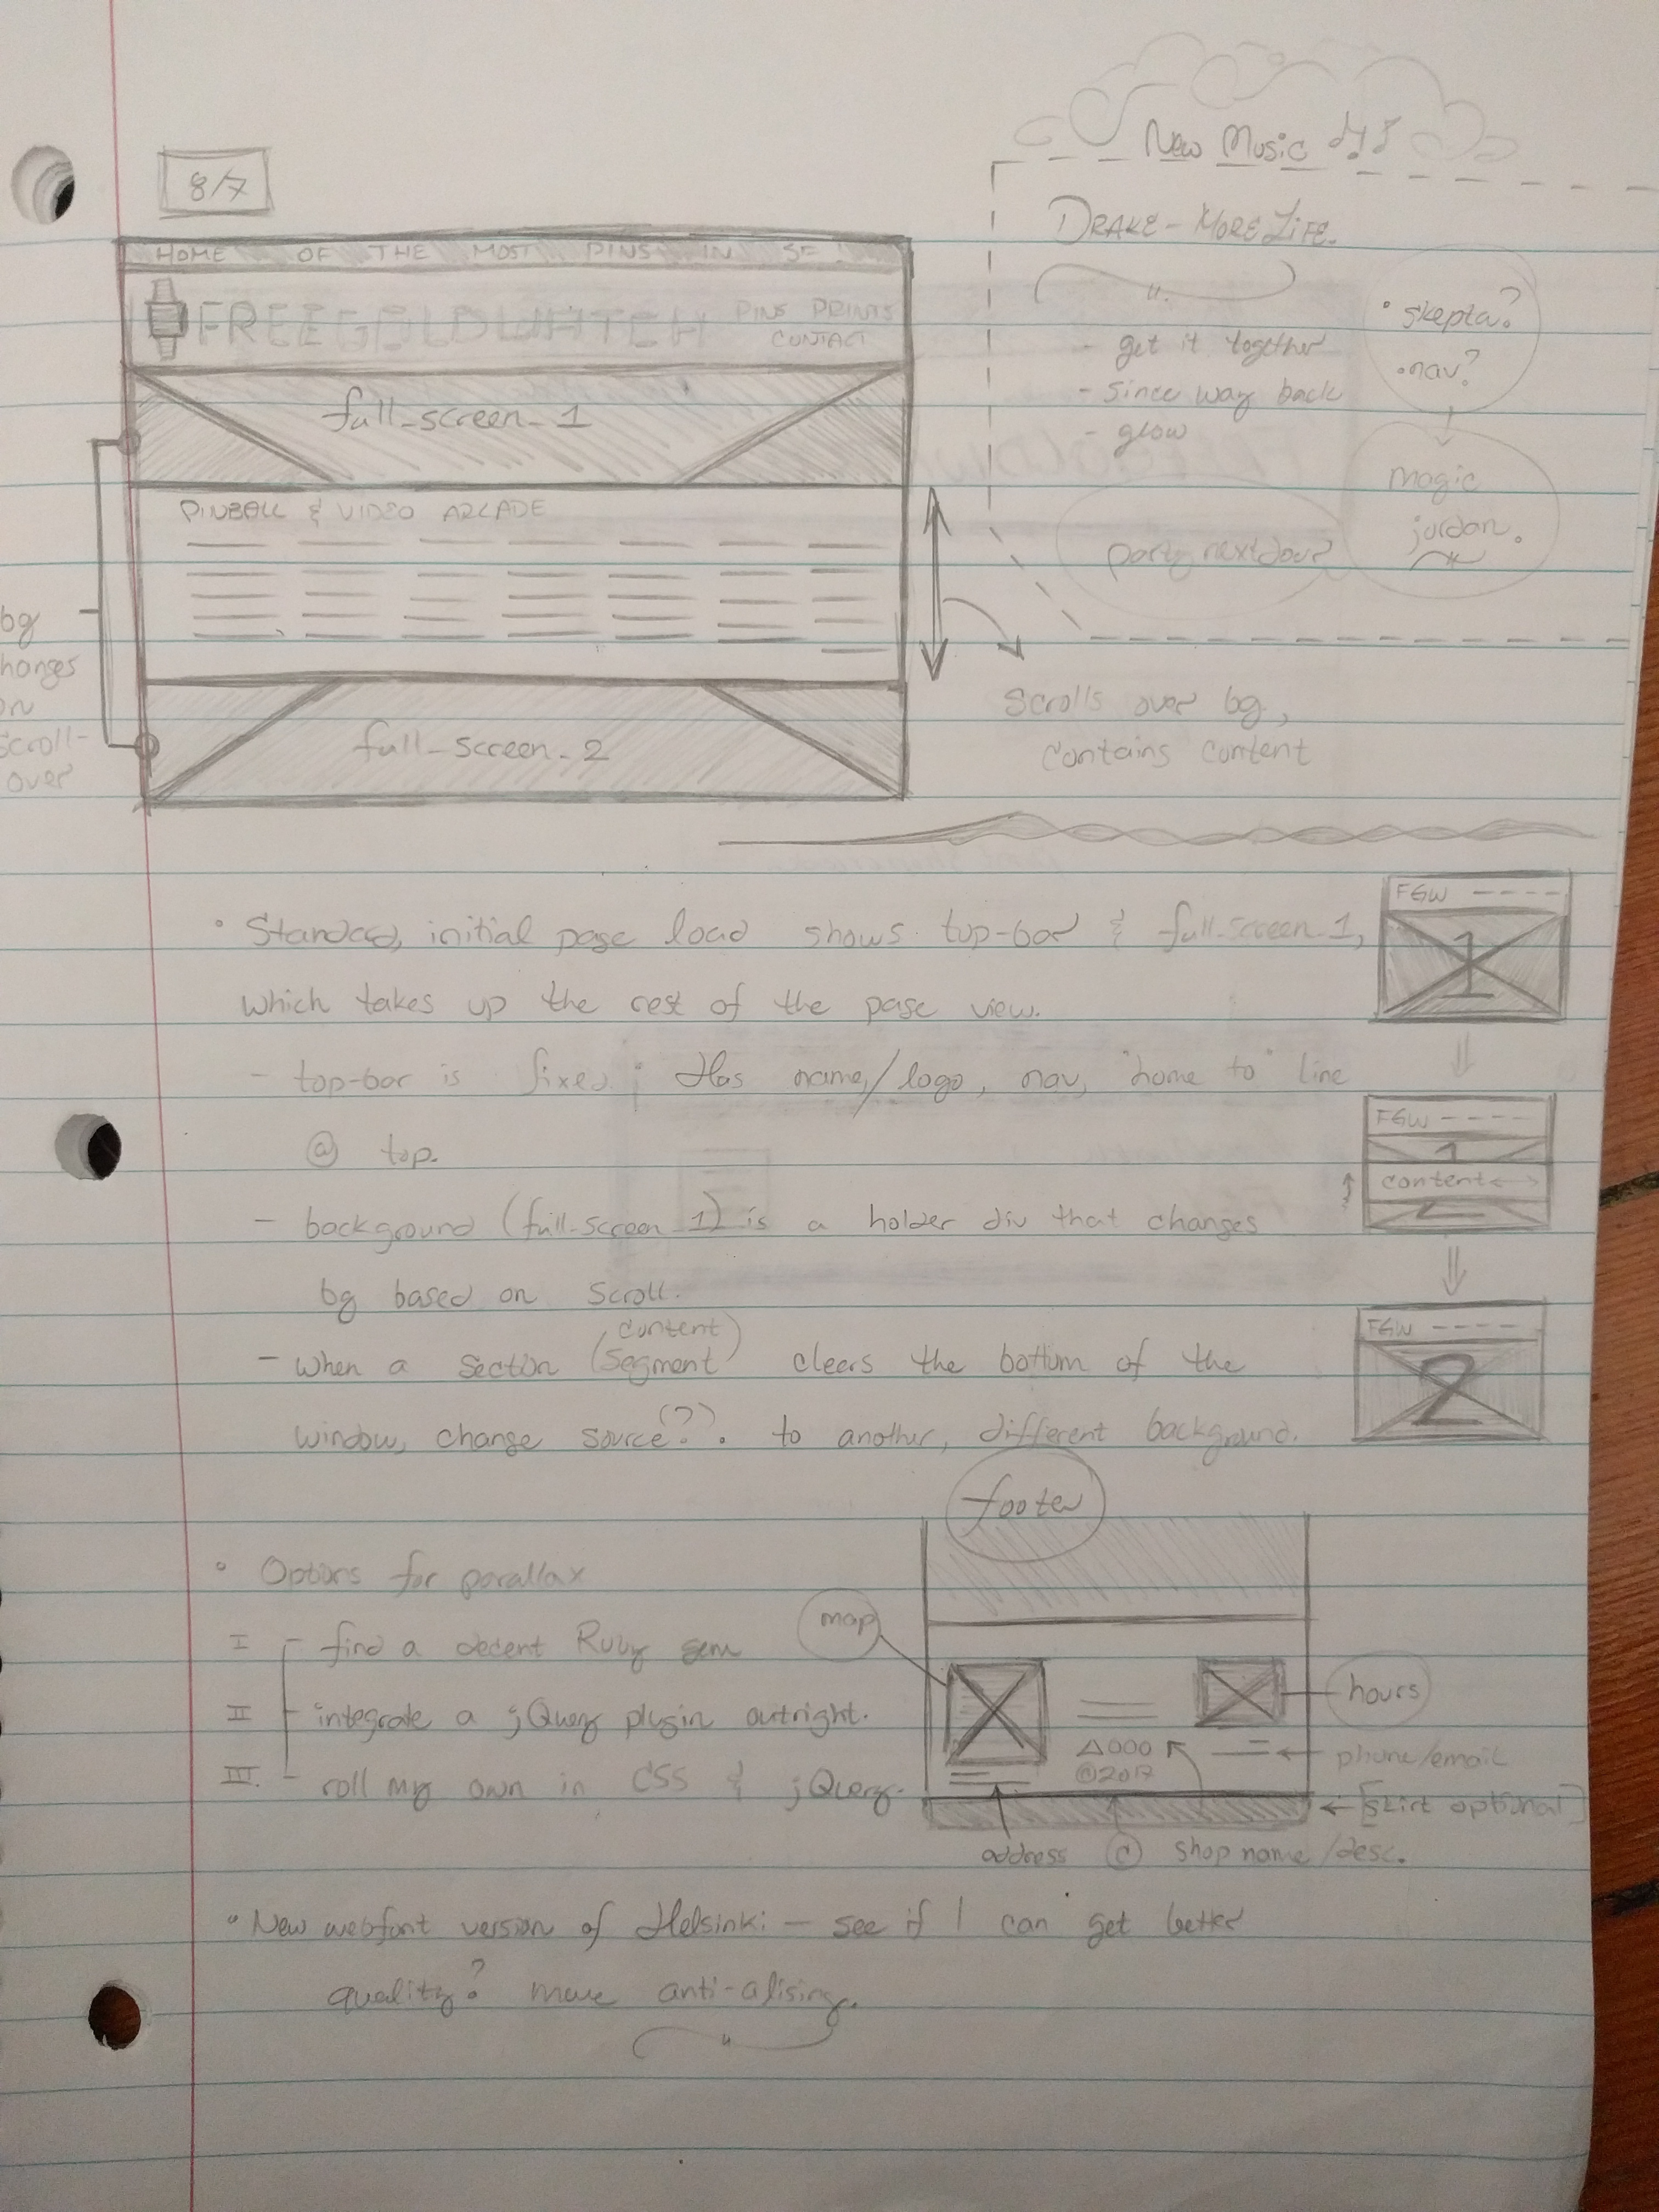 8/7
HOME OF THE MOST PINS IN SF!
FREEGOLDWATCH
PINS PRINTS
CONTACT
full_screen_1
PINBALL & VIDEO ARCADE
full_screen_2
bg
hanges
on
scroll-
over
scrolls over bg,
contains content
New Music
DRAKE - MORE LIFE.
- get it together
- since way back
- glow
• skepta?
• nav?
magic
jordan.
partynextdoor?
• Standard, initial page load shows top-bar & full-screen-1,
which takes up the rest of the page view.
- top-bar is fixed; Has name/logo, nav, "home to" line
@ top.
- background (full-screen_1) is a holder div that changes
bg based on scroll.
content
- when a section (segment) clears the bottom of the
window, change source(?)?. to another, different background.
FGW
1
FGW
1
content
2
FGW
2
• Options for parallax
I - find a decent Ruby gem
II - integrate a jQuery plugin outright.
III. - roll my own in CSS & jQuery.
footer
map
hours
©2017
phone/email
[skirt optional]
address © shop name/desc.
• New webfont version of Helsinki - see if I can get better
quality? more anti-alising.